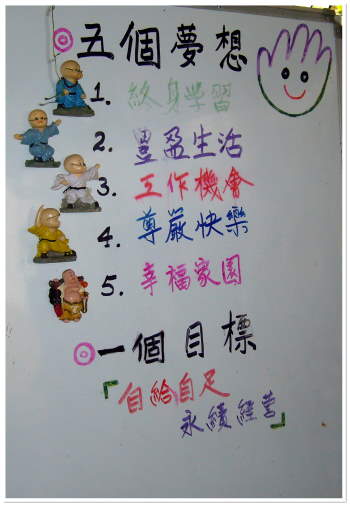 五個夢想
1. 終身學習
2. 豐盈生活
3. 工作機會
4. 尊嚴快樂
5. 幸福家園
一個目標
「自給自足
永續經营」